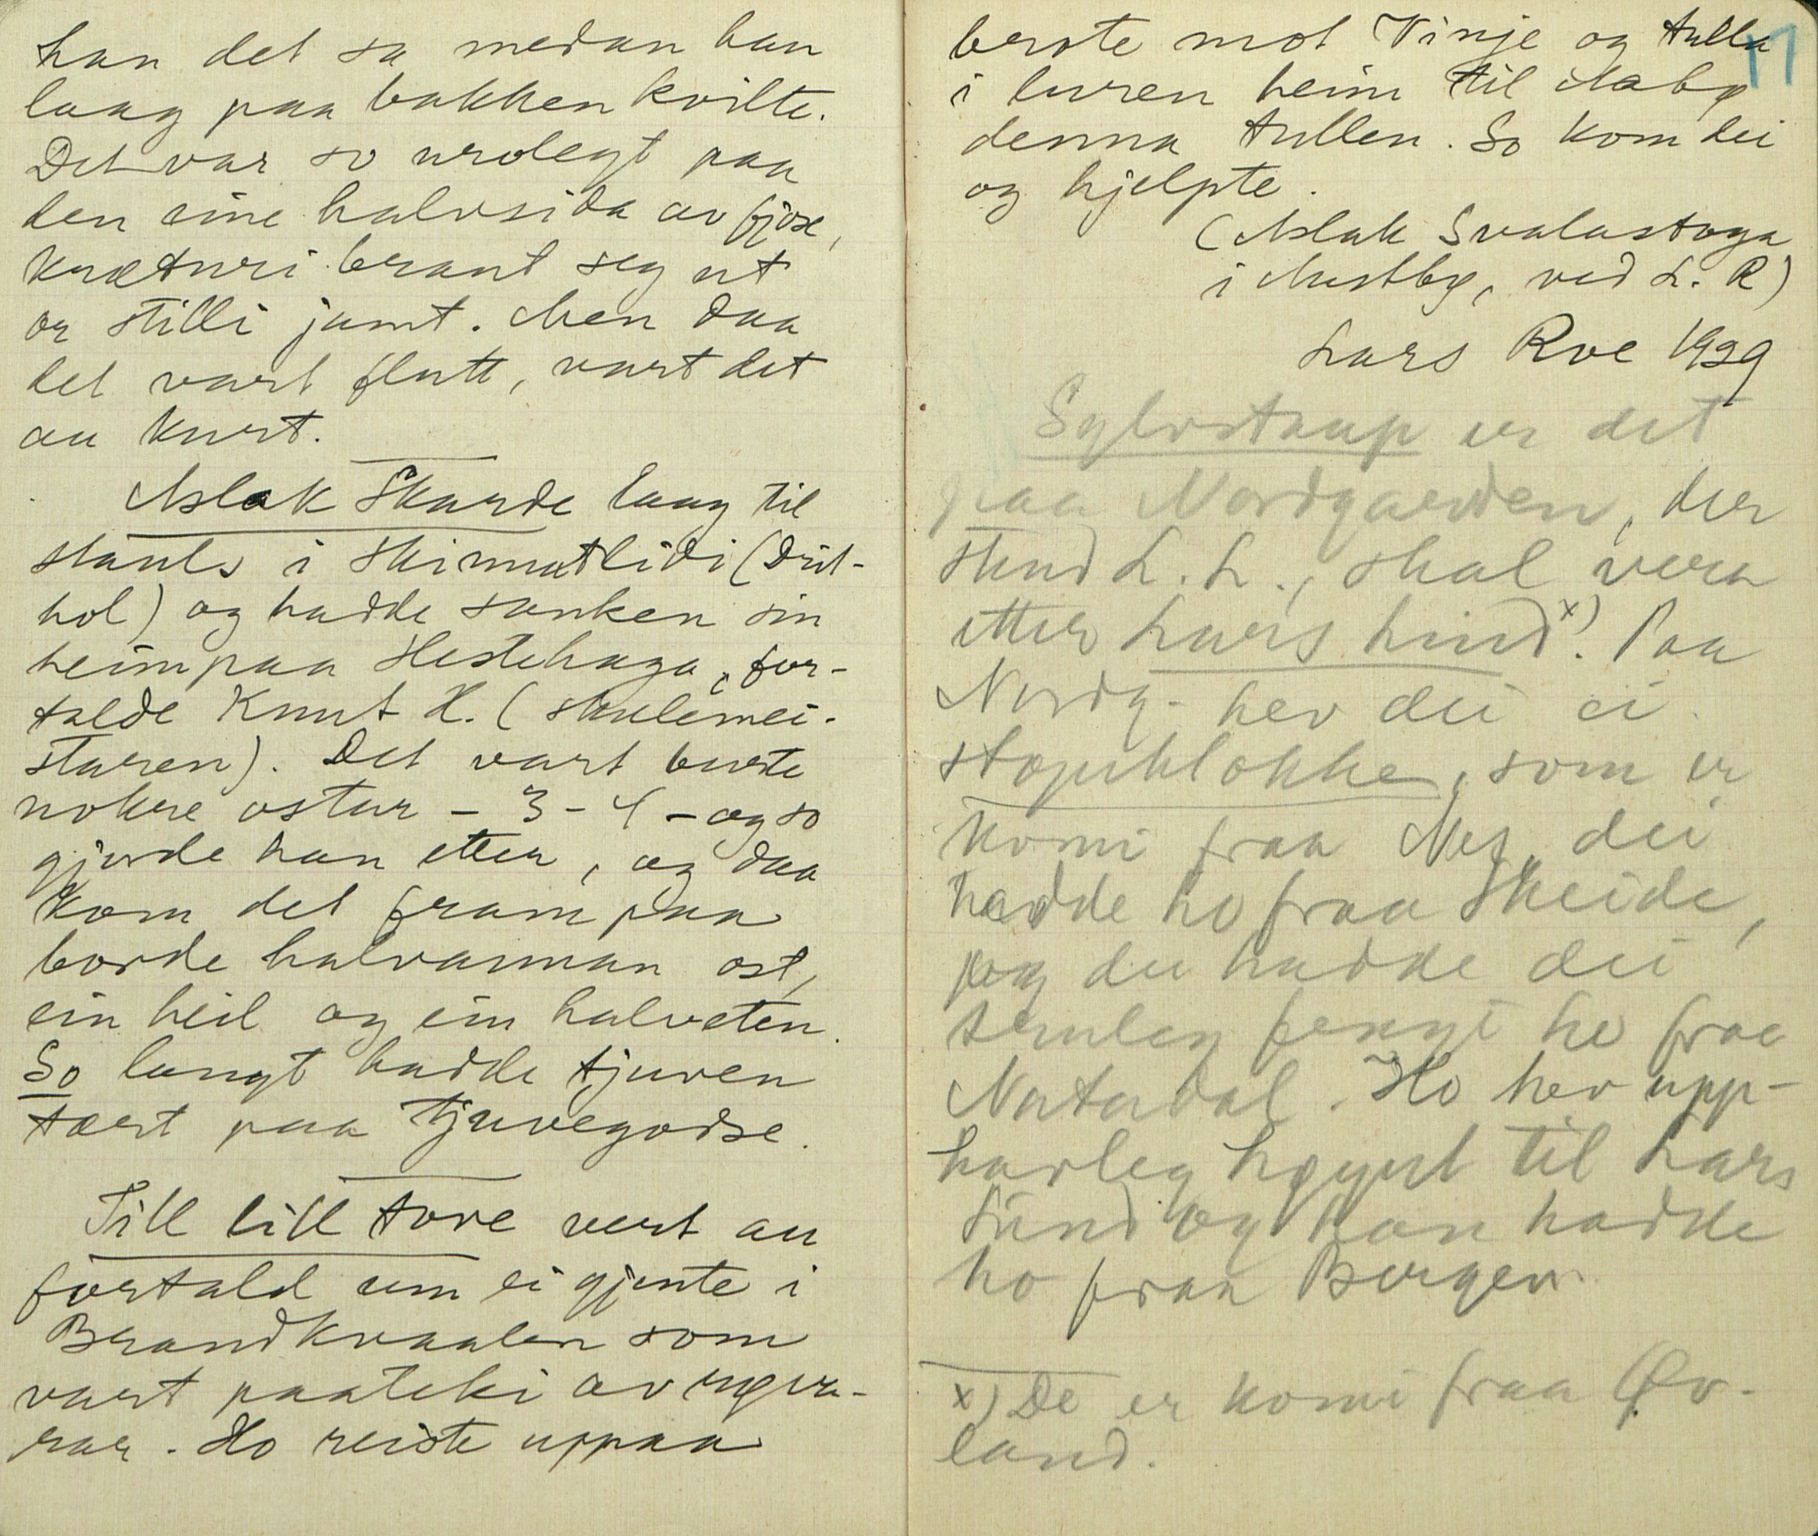 han det sa medan han
laag paa bakken kvilte.
Det var so urolegt paa
den eine halvsida av fjose,
krøturi braut seg ut
or stilli jamt. Men daa
det vart flutt, vart det
au kurt.
Aslak Skarde laag til
stauls i Skinnutlidi (Drit-
hol) og hadde sanken sin
heim paa Hestehaga, for-
talde Knut H. (skulemei-
staren). Det vart burte
nokre ostur - 3 - 4 - og so
gjorde han etter, og daa
kom det fram paa
borde halvannan ost,
ein heil og ein halveten.
So langt hadde tjuven
tært paa tjuvegodse.
Till lill tove vert au
fortald um ei gjente i
Brandkvaalen som
vart paateki av røva-
rar. Ho reiste uppaa
17
berste mot Vinje og tulla
i luren heim til Aabø
denna tullen. So kom dei
og hjelpte.
(Aslak Svalastoga
i Austbø, ved L. R)
Lars Roe 1929
Sylvstaup er det
paa Nordgarden, der
stend L. L., skal vera
etter Lars Lind x). Paa
Nordg. hev dei ei
støpulklokke, som er
komi fraa Nes, dei
hadde ho fraa Skeide,
og der hadde dei
truleg fengi ho fraa
Natadal. Ho hev upp-
havleg høyrt til Lars
Lind og han hadde
ho fraa Bergen
x) De er komi fraa Øv-
land.